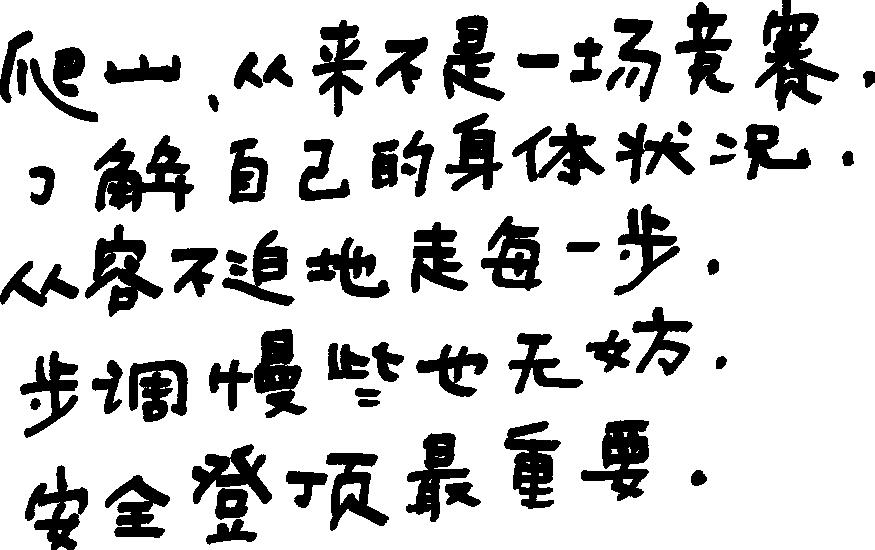 爬山、从来不是一场竞赛，
了解自己的身体状况．
从容不迫地走每一步．
步调慢些也无妨．
安全登顶最重要．